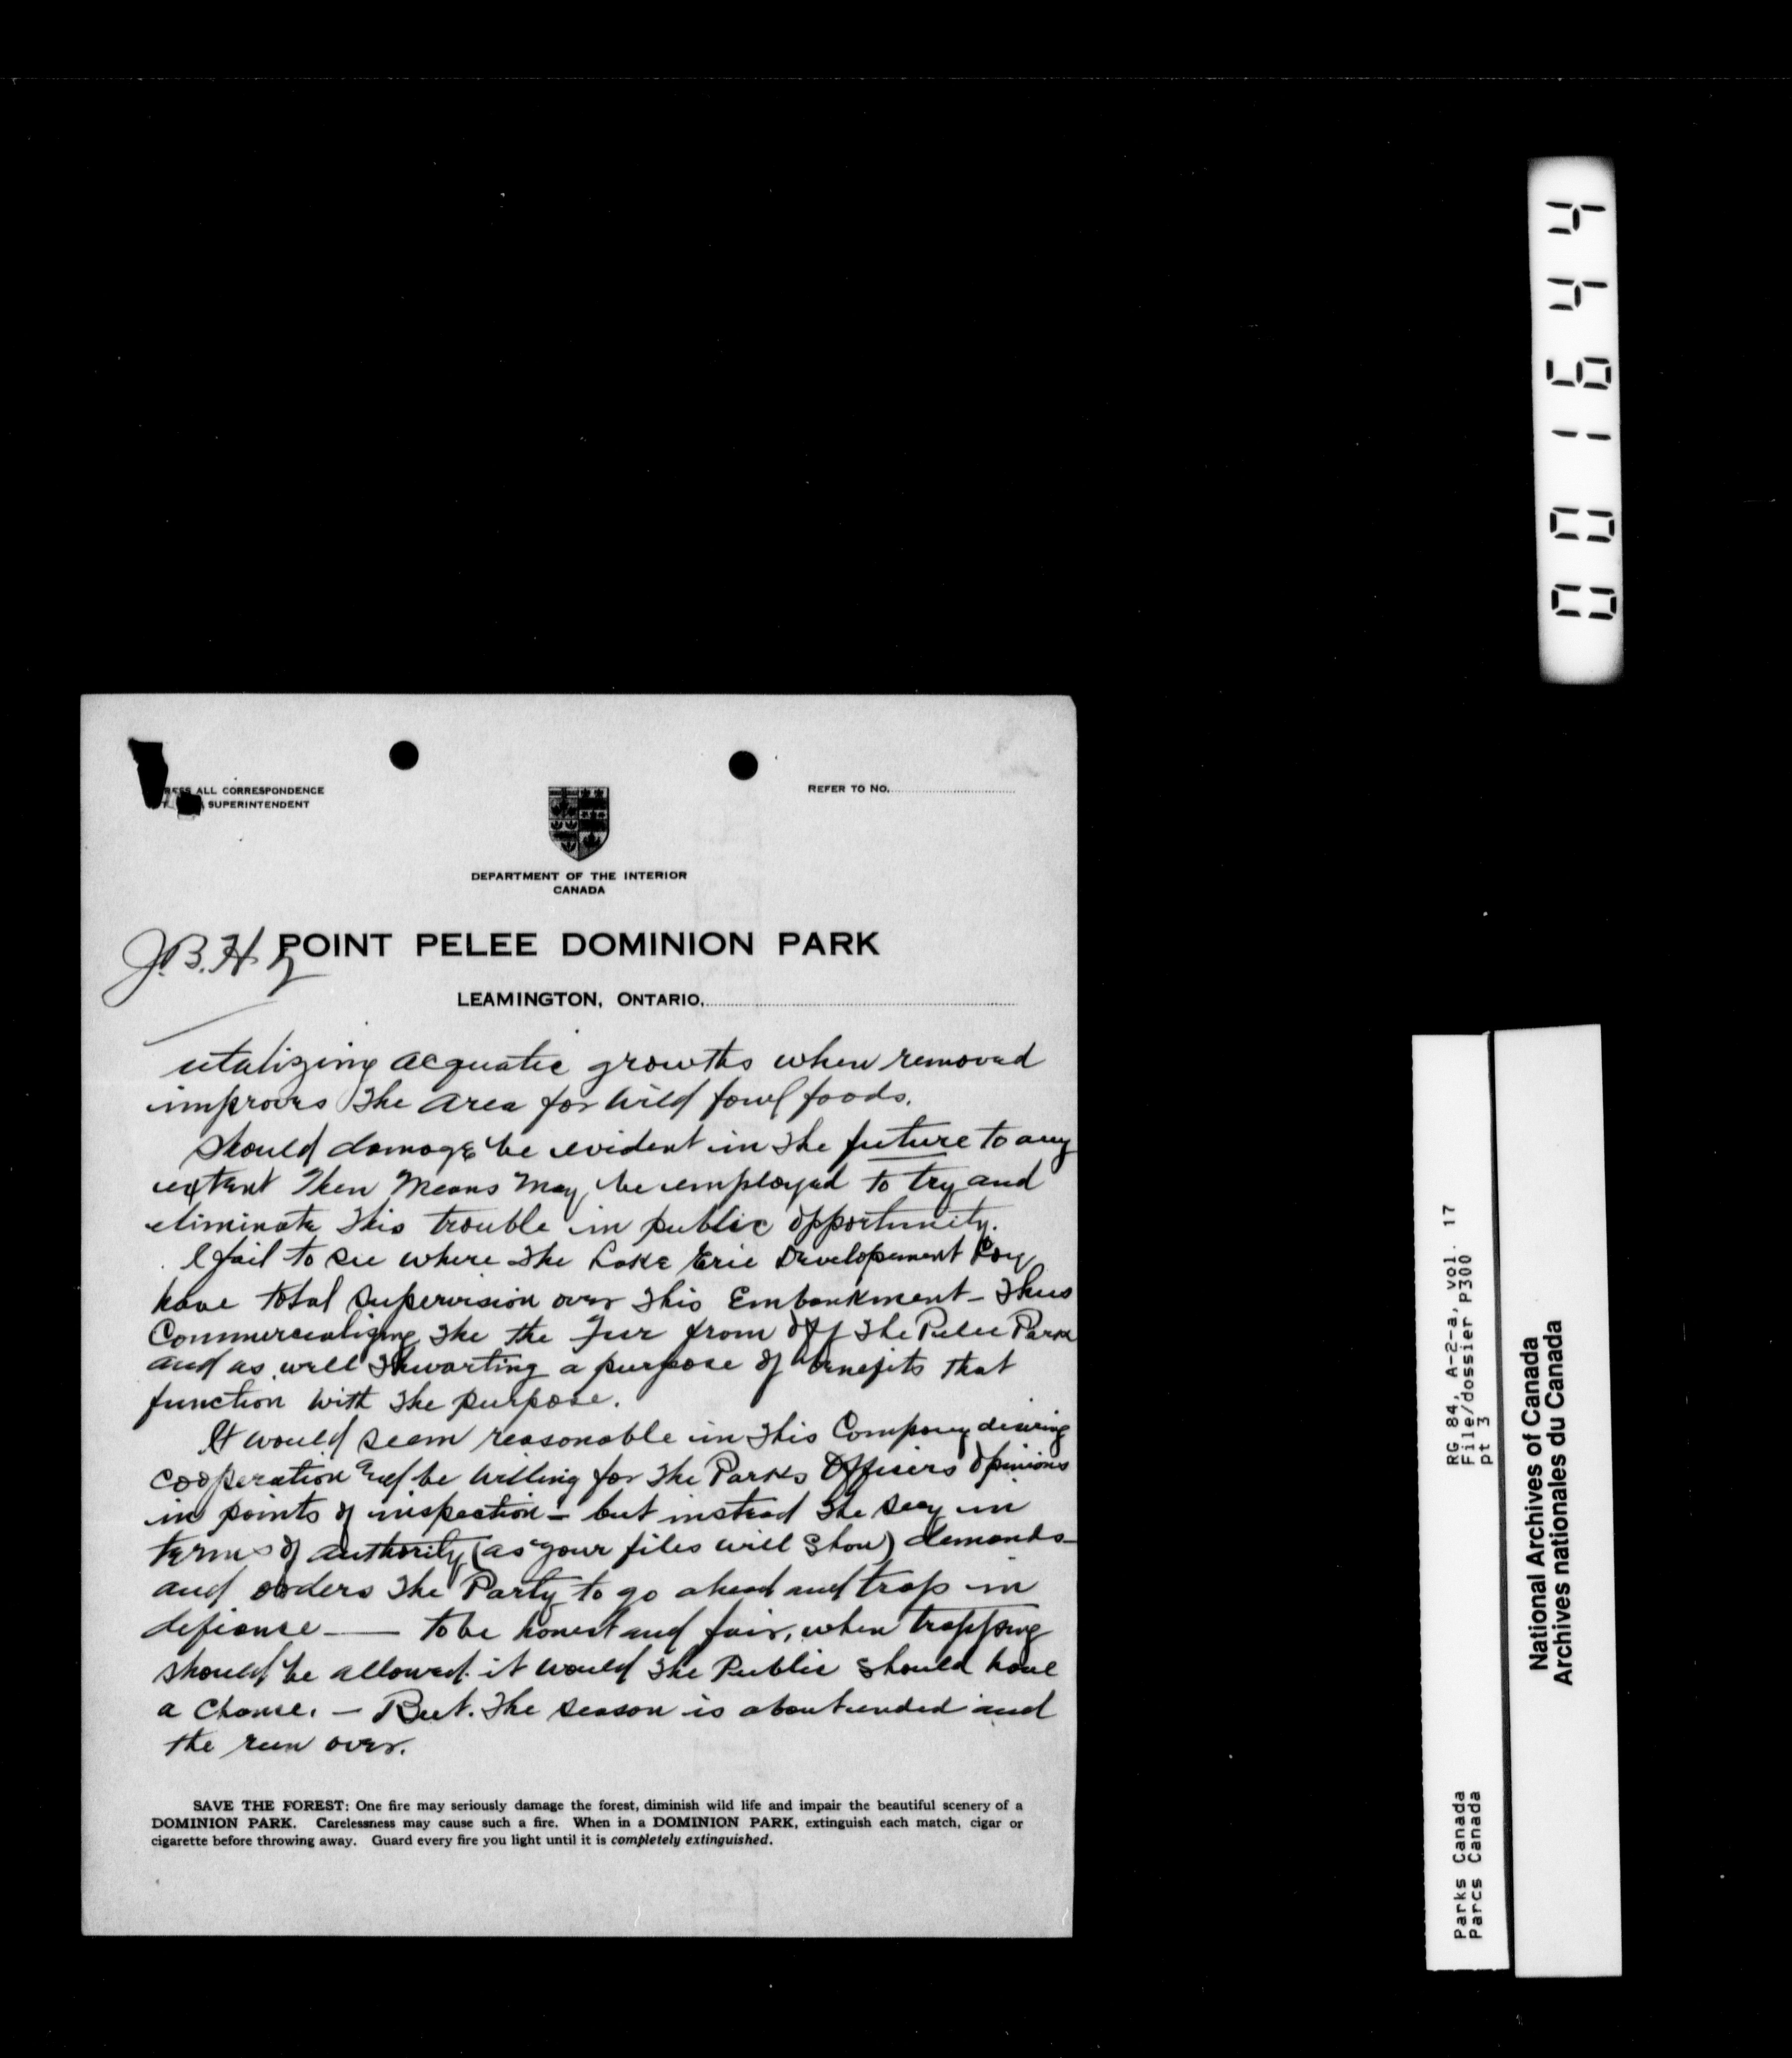 RESS ALL CORRESPONDENCE
SUPERINTENDENT
REFER TO NO.
DEPARTMENT OF THE INTERIOR
CANADA
J.B.H.
POINT PELEE DOMINION PARK
LEAMINGTON, ONTARIO,
utalizing acquatic growths when removed
improves the area for wild fowl foods.
Should damage be evident in the future to any
extent then means may be employed to try and
eliminate this trouble in public opportunity.
I fail to see where the Lake Erie Developement Coy
have total supervision over this Embankment - Thus
Commercializing the the Fur from off the Pelee Park
and as well thwarting a purpose of benefits that
function with the purpose.
It would seem reasonable in this Company desiring
cooperation and be willing for the Parks Officers opinions
in points of inspection - but instead the say in
terms of authority (as your files will show) demands -
and orders the Party to go ahead and trap in
defianse — to be honest and fair, when trapping
should be allowed it would the Public should have
a Chanse. - But. The season is about ended and
the run over.
SAVE THE FOREST: One fire may seriously damage the forest, diminish wild life and impair the beautiful scenery of a
DOMINION PARK. Carelessness may cause such a fire. When in a DOMINION PARK, extinguish each match, cigar or
cigarette before throwing away. Guard every fire you light until it is completely extinguished.
001644
RG 84, A-2-a, vol. 17
File/dossier P300
pt 3
Parks Canada
Parcs Canada
National Archives of Canada
Archives nationales du Canada